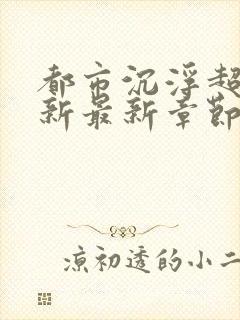 都市沉浮超
新最新章節
凉初透的小二